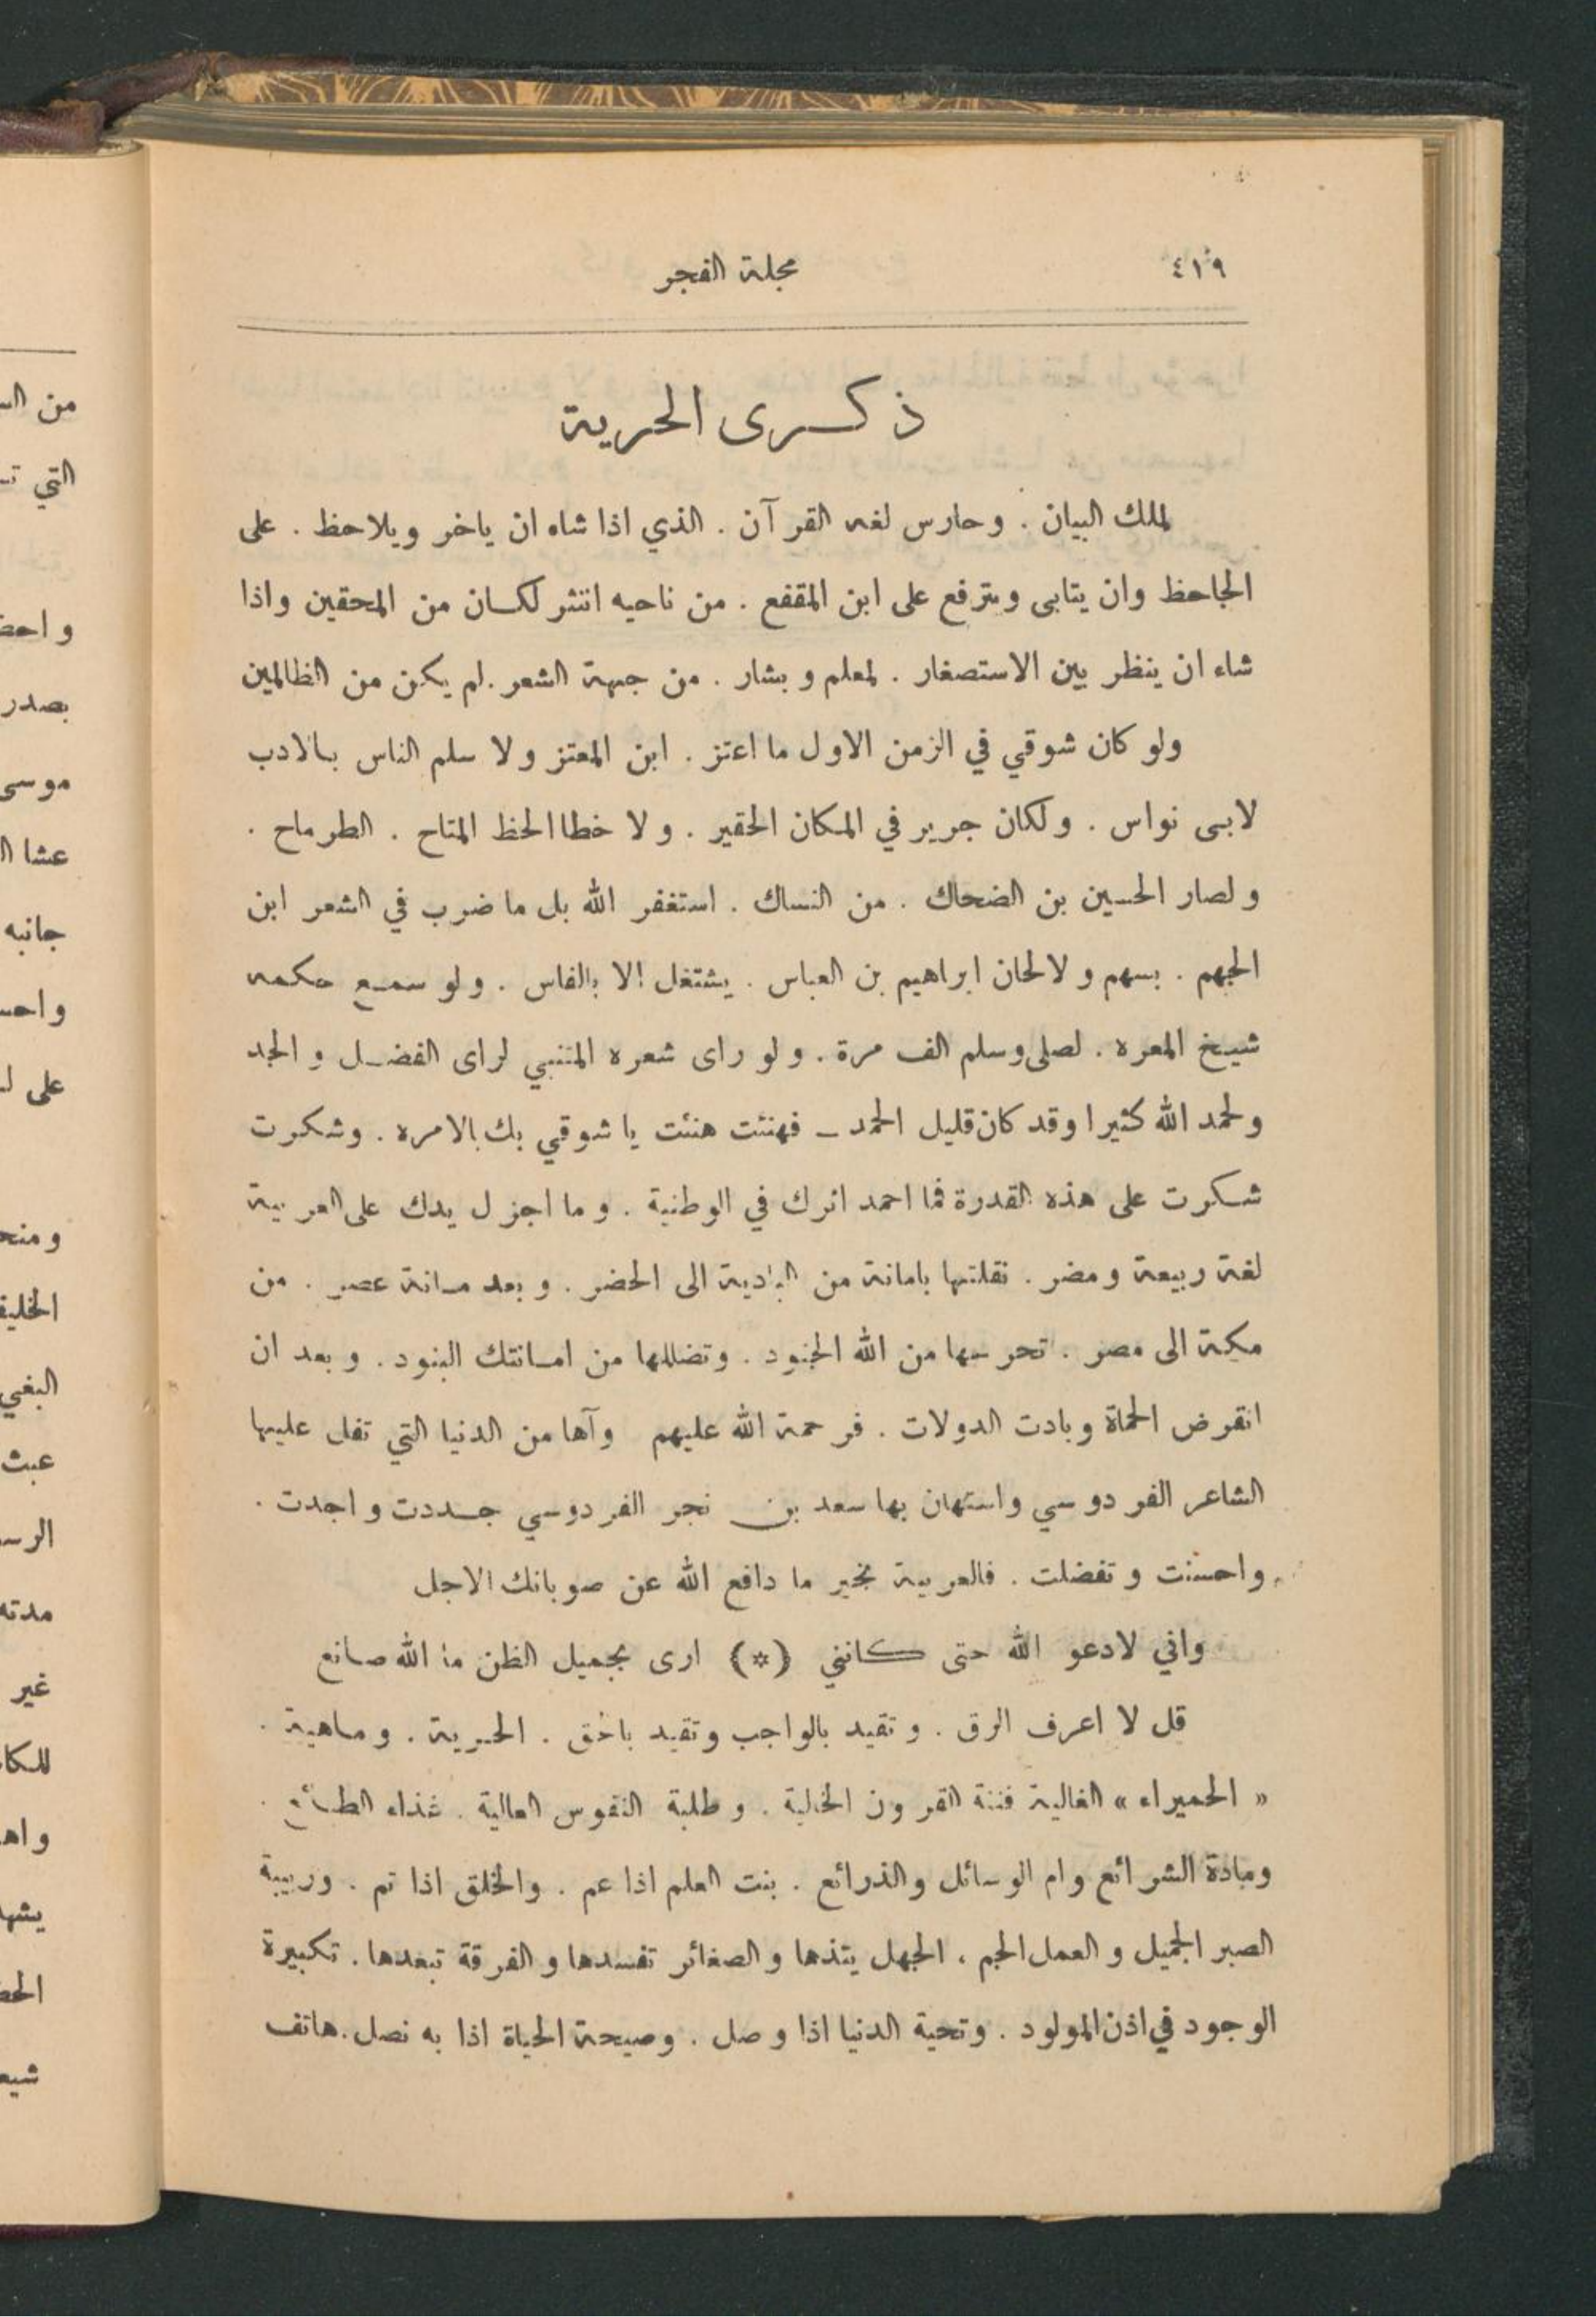 ٤١٩
مجلة الفجر
ذكرى الحرية
لملك البيان . وحارس لغه القرآن . الذي اذا شاء ان ياخر ويلاحظ . على
الجاحظ وان يتابى ويترفع على ابن المقفع . من ناحيه النثر لكان من المحقين واذا
شاء ان ينظر بين الاستصغار . لمعلم وبشار . من جهة الشعر . لم يكن من الظالمين
ولو كان شوقي في الزمن الاول ما اعتز . ابن المعتز ولا سلم الناس بالادب
لابى نواس . ولكان جرير في المكان الحقير . ولا خطا الحظ المتاح . الطرماح .
ولصار الحسين بن الضحاك . من النساك . استغفر الله بل ما ضرب في الشعر ابن
الجهم . بسهم ولا لحان ابراهيم بن العباس . يشتغل الا بالفاس . ولو سمع حكمه
شيخ المعره . لصلى وسلم الف مرة . ولو راى شعره المتنبي لراى الفضل والمجد
ولحمد الله كثيرا وقد كان قليل الحمد ـ فهنئت هنئت يا شوقي بك بالامره . وشكرت
شكرت على هذه القدرة فما احمد اثرك في الوطنية . وما اجزل يدك على العربية
لغة ربيعة ومضر . نقلتها بامانة من البادية الى الحضر . وبعد مائة عصر . من
مكة الى مصر . تحرسها من الله الجنود . وتضللها من امانتك البنود . وبعد ان
انقرض الحماة وبادت الدولات . فرحمة الله عليهم وآها من الدنيا التي تفل عليها
الشاعر الفردوسي واستهان بها سعد بن نجر الفردوسي جددت واجدت .
واحسنت وتفضلت . فالعربية بخير ما دافع الله عن صوبانك الاجل
واني لادعو الله حتى كانني (*) ارى بجميل الظن ما الله صانع
قل لا اعرف الرق . وتقيد بالواجب وتقيد بالحق . الحرية . وماهية .
« الحميراء » الغالية فتنة القرون الخالية . وطلبة النفوس العالية . غذاء الطبائع .
ومادة الشرائع وام الوسائل والذرائع . بنت العلم اذا عم . والخلق اذا تم . وربيبة
الصبر الجميل والعمل الجم . الجهل يئذها والصغائر تفسدها والفرقة تبعدها . تكبيرة
الوجود في اذن المولود . وتحية الدنيا اذا وصل . وصيحة الحياة اذا به نصل . هاتف